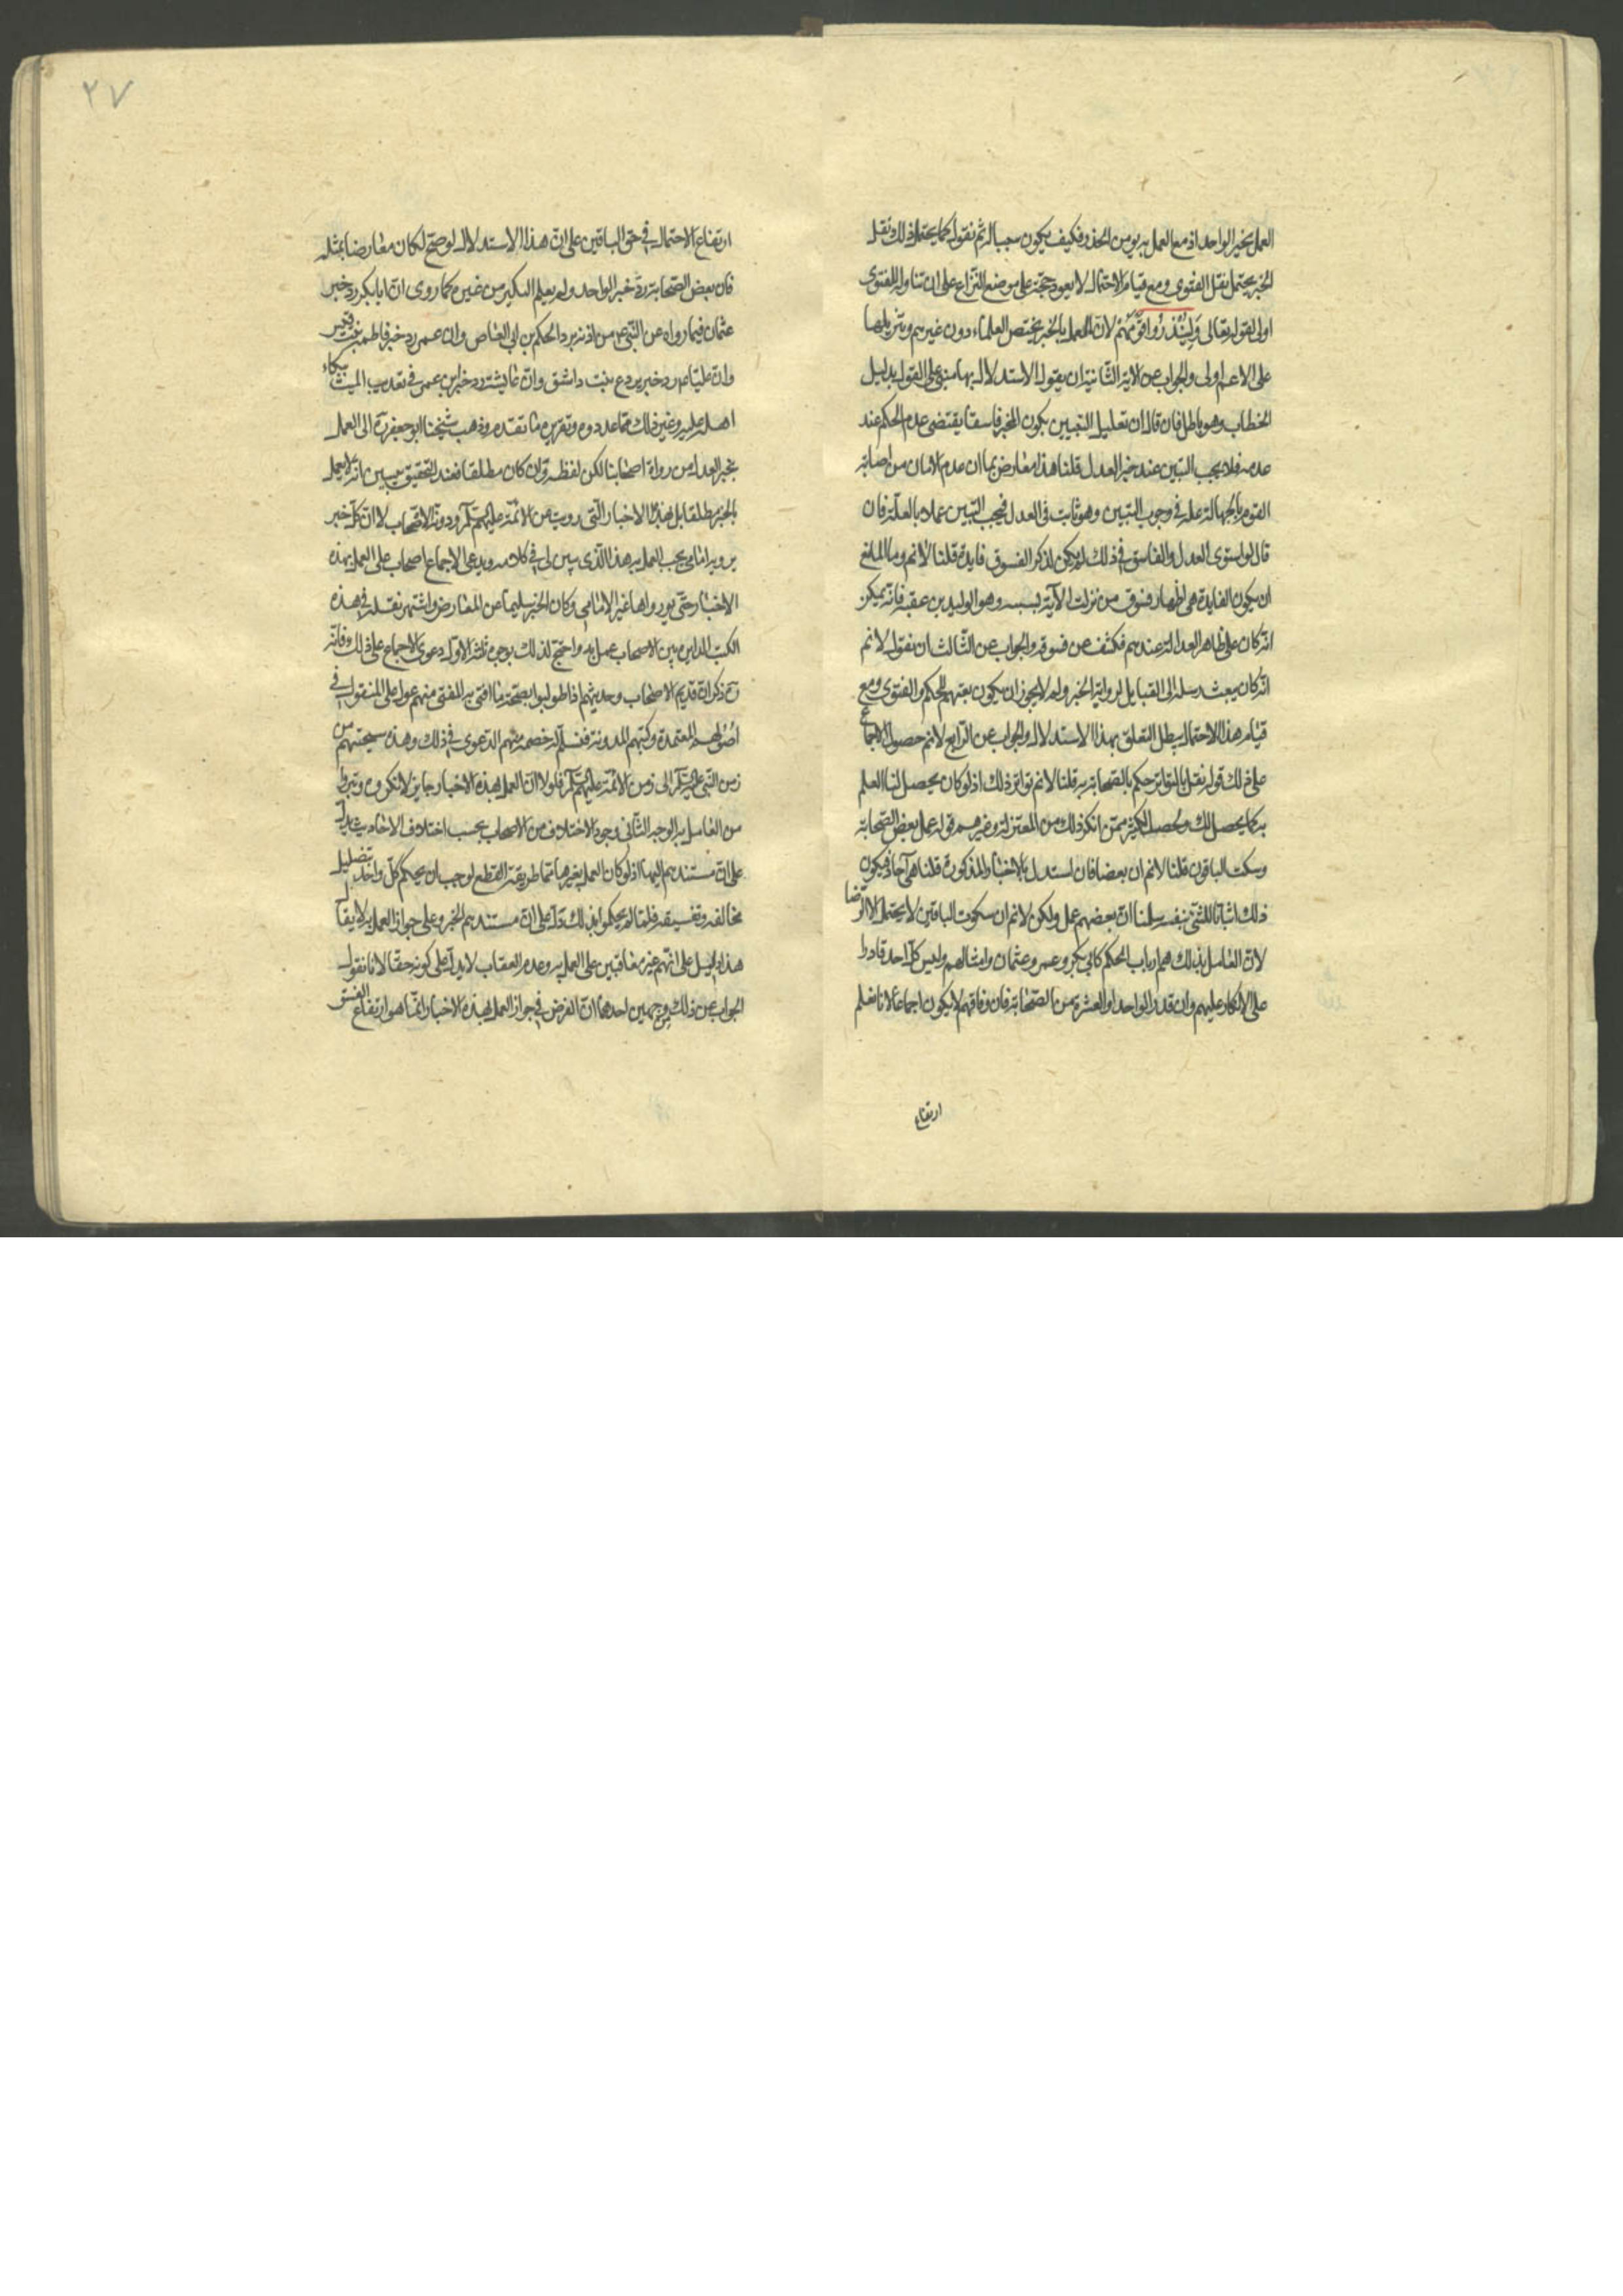 العمل بخبر الواحد اذ مع العمل به يؤمن الحذر فكيف يكون سببا له ثم نقول كما يحتمل ذلك نقل
الخبر يحتمل نقل الفتوى ومع قيام الاحتمال لا يعود حجة على موضع النزاع على ان تناوله للفتوى
اولى لقوله تعالى وَلِيُنْذِرُوا قَوْمَهُمْ لان العمل بالخبر يختص العلماء دون غيرهم وتنزيلها
على الاعم اولى والجواب عن الآية الثانية ان يقول الاستدلال بها مبنى على القول بدليل
الخطاب وهو باطل فان قال ان تعليل التبيين بكون المخبر فاسقا يقتضى عدم الحكم عند
عدمه فلا يجب التبين عند خبر العدل قلنا هذا معارض بما ان عدم الامان من اصابة
القوم بالجهالة علة فى وجوب التبيين وهو ثابت فى العدل فيجب التبيين عملا بالعلة فان
قال لو استوى العدل والفاسق فى ذلك لم يكن لذكر الفسوق فايدة قلنا لا نم وما المانع
ان يكون الفايدة هى اظهار فسوق من نزلت الآية بسببه وهو الوليد بن عقبة فانه يمكن
انه كان على ظاهر العدالة عندهم فكشف عن فسوقه والجواب عن الثالث ان نقول لا نم
انه كان يبعث رسله الى القبايل لرواية الخبر ولم لا يجوز ان يكون بعثهم للحكم والفتوى ومع
قيام هذا الاحتمال يبطل التعلق بهذا الاستدلال والجواب عن الرابع لا نم حصول الاجماع
على ذلك قوله نقل بالتواتر حكم الصحابة به قلنا لا نم تواتر ذلك اذ لو كان يحصل لنا العلم
به كما يحصل لك ويحصل لكثير ممن انكر ذلك من المعتزلة وغيرهم قوله عمل بعض الصحابة
وسكت الباقون قلنا لا نم ان بعضا فان استدل بالاخبار المذكورة قلنا هى آحاد فيكون
ذلك اثباتا للشئ بنفسه سلمنا ان بعضهم عمل ولكن لا نم ان سكوت الباقين لا يحتمل الا الرضا
لان العامل بذلك هم ارباب الحكم كابي بكر وعمر وعثمان وامثالهم وليس كل احد قادرا
على الانكار عليهم وان قدر الواحد او العشرة من الصحابة فان وفاقهم لا يكون اجماعا لانا نعلم
ارتفاع
٢٧
ارتفاع الاحتمال فى حق الباقين على ان هذا الاستدلال لو صح لكان معارضا بمثله
فان بعض الصحابة ردّ خبر الواحد ولم يعلم النكير من غيره كما روى ان ابا بكر رد خبر
عثمان فيما رواه عن النبى ص من اذنه برد الحكم بن ابى العاص وان عمر رد خبر فاطمة بنت قيس
وان عليا عم رد خبر بردع بنت داشق وان عايشة رد خبر ابن عمر فى تعذيب الميت ببكاء
اهله عليه وغير ذلك مما عددوه وتقريره ما تقدم وذهب شيخنا ابو جعفر ره الى العمل
بخبر العدل من رواة اصحابنا لكن لفظه وان كان مطلقا فعند التحقيق يتبين انه لا يعمل
بالخبر مطلقا بل بهذه الاخبار التى رويت عن الائمة عليهم السلام ودونها الاصحاب لا ان كل خبر
يرويه امامى يجب العمل به هذا الذى يتبين لى فى كلامه ويدعى الاجماع اصحاب على العمل بهذه
الاخبار حتى لو رواها غير الامامى وكان الخبر سليما عن المعارض واشتهر نقله فى هذه
الكتب الدايرة بين الاصحاب عمل به واحتج لذلك بوجوه ثلثة الاول دعوى الاجماع على ذلك فانه
ره ذكر ان قديم الاصحاب وحديثهم اذا طولبوا بصحة ما افتى به المفتى منهم عول على المنقول فى
اصولهم المعتمدة وكتبهم المدونة فيسلم له خصمه منهم الدعوى فى ذلك وهذه سجيتهم من
زمن النبى عليه السلام الى زمن الائمة عليهم السلام فلولا ان العمل بهذه الاخبار جايز لانكروه وتبرؤا
من العامل به الوجه الثانى وجود الاختلاف من الاصحاب بحسب اختلاف الاحاديث يدل
على ان مستندهم اليها اذ لو كان العمل بغيرها مما طريقه القطع لوجب ان يحكم كل واحد بتضليل
مخالفه وتفسيقه فلما لم يحكموا بذلك دلّ على ان مستندهم الخبر وعلى جواز العمل به لا يقال
هذا دليل على انهم غير معاقبين على العمل به وعدم العقاب لا يدل على كونه حقا لانا نقول
الجواب عن ذلك من وجهين احدهما ان الغرض فى جواز العمل بهذه الاخبار انما هو ارتفاع الفسق